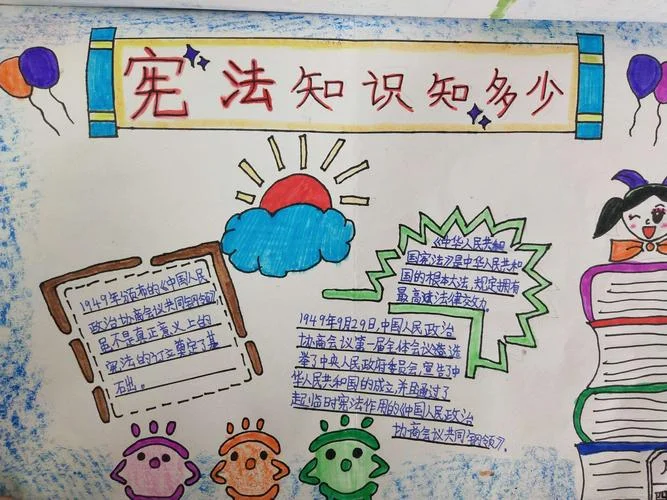 宪法知识知多少
1949年颁布的《中国人民
政治协商会议共同纲领》
虽不是真正意义上的
宪法的订立奠定了基
石出。
《中华人民共和
国宪法》是中华人民共和
国的根本大法,规定拥有
最高法律效力。
1949年9月29日,中国人民政治
协商会议第一届全体会议选
举了中央人民政府委员会,宣告了中
华人民共和国的成立,并且通过了
起临时宪法作用的《中国人民政治
协商会议共同纲领》。